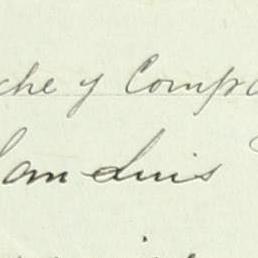 che y Compa
San Luis